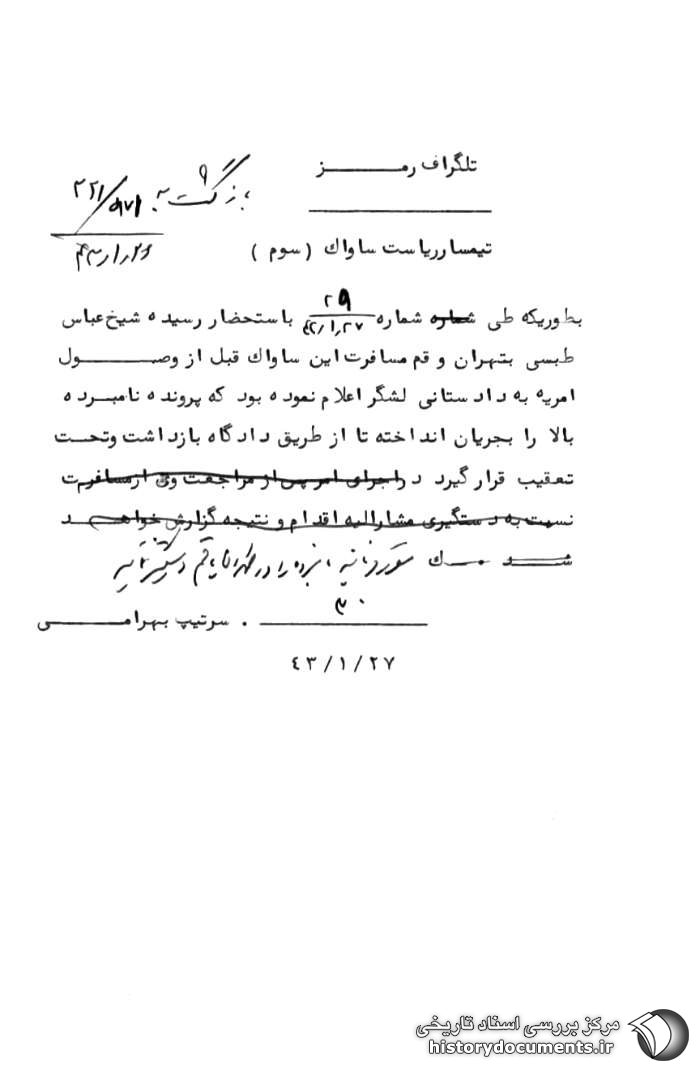 تلگراف رمـــــــز
بازگشت به ۲۲۱/۵۷۱
۴۳/۱/۲۶
تیمسار ریاست ساواك (سوم)
بطوریکه طی شماره شماره ۲۹ باستحضار رسیده شیخ عباس
۴۳/۱/۲۷
طبسی بتهران و قم مسافرت این ساواك قبل از وصـــــول
امریه به دادستانی لشگر اعلام نموده بود که پرونده نامبرده
بالا را بجریان انداخته تا از طریق دادگاه بازداشت وتحت
تعقیب قرار گیرد در اجرای امر پس از مراجعت وی از مسافرت
نسبت به دستگیری مشارالیه اقدام و نتیجه گزارش خواهد
شـــد ك دستور فرمائید نامبرده را در طهران یا قم دستگیر نمایند
۳۰
سرتیپ بهرامـــــی
٤٣/١/٢٧
مرکز بررسی اسناد تاریخی
historydocuments.ir